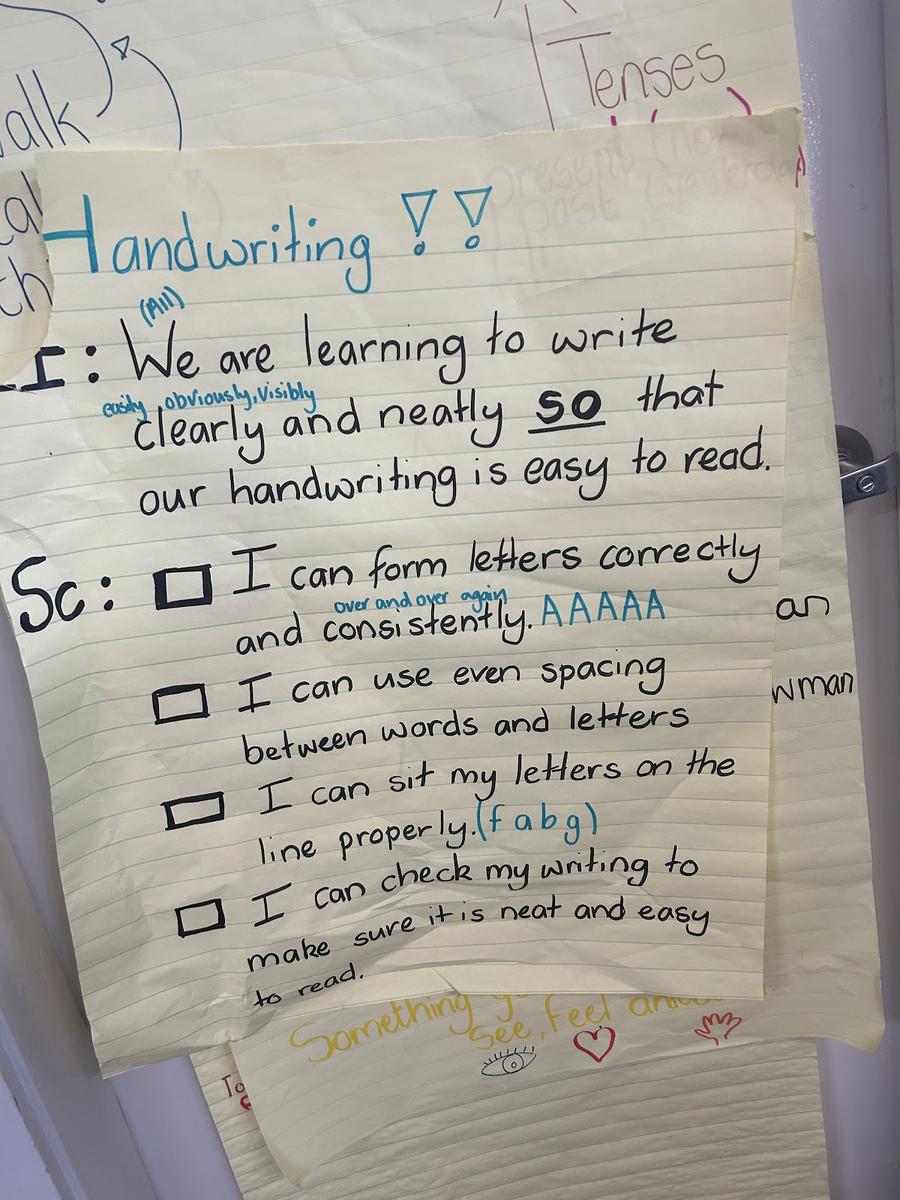 alk
Tenses
present (now)
past (yesterday)
Handwriting !!
(All)
LI: We are learning to write
easily obviously, visibly
clearly and neatly so that
our handwriting is easy to read.
Sc: I can form letters correctly
over and over again
and consistently. AAAAA
I can use even spacing
between words and letters
I can sit my letters on the
line properly. (f a b g)
I can check my writing to
make sure it is neat and easy
to read.
an
wman
Something
see, feel
To